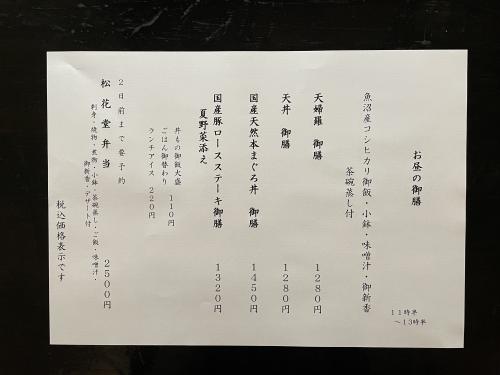 お昼の御膳
１１時半
～１３時半
魚沼産コシヒカリ御飯・小鉢・味噌汁・御新香
茶碗蒸し付
天婦羅　御膳　１２８０円
天丼　御膳　１２８０円
国産天然本まぐろ丼　御膳　１４５０円
国産豚ロースステーキ御膳　１３２０円
夏野菜添え
丼もの御飯大盛　１１０円
ごはん御替わり
ランチアイス　２２０円
２日前まで要予約
松花堂弁当　２５００円
刺身・焼物・煮物・小鉢・茶碗蒸し・ご飯・味噌汁・
御新香・デザート付
税込価格表示です